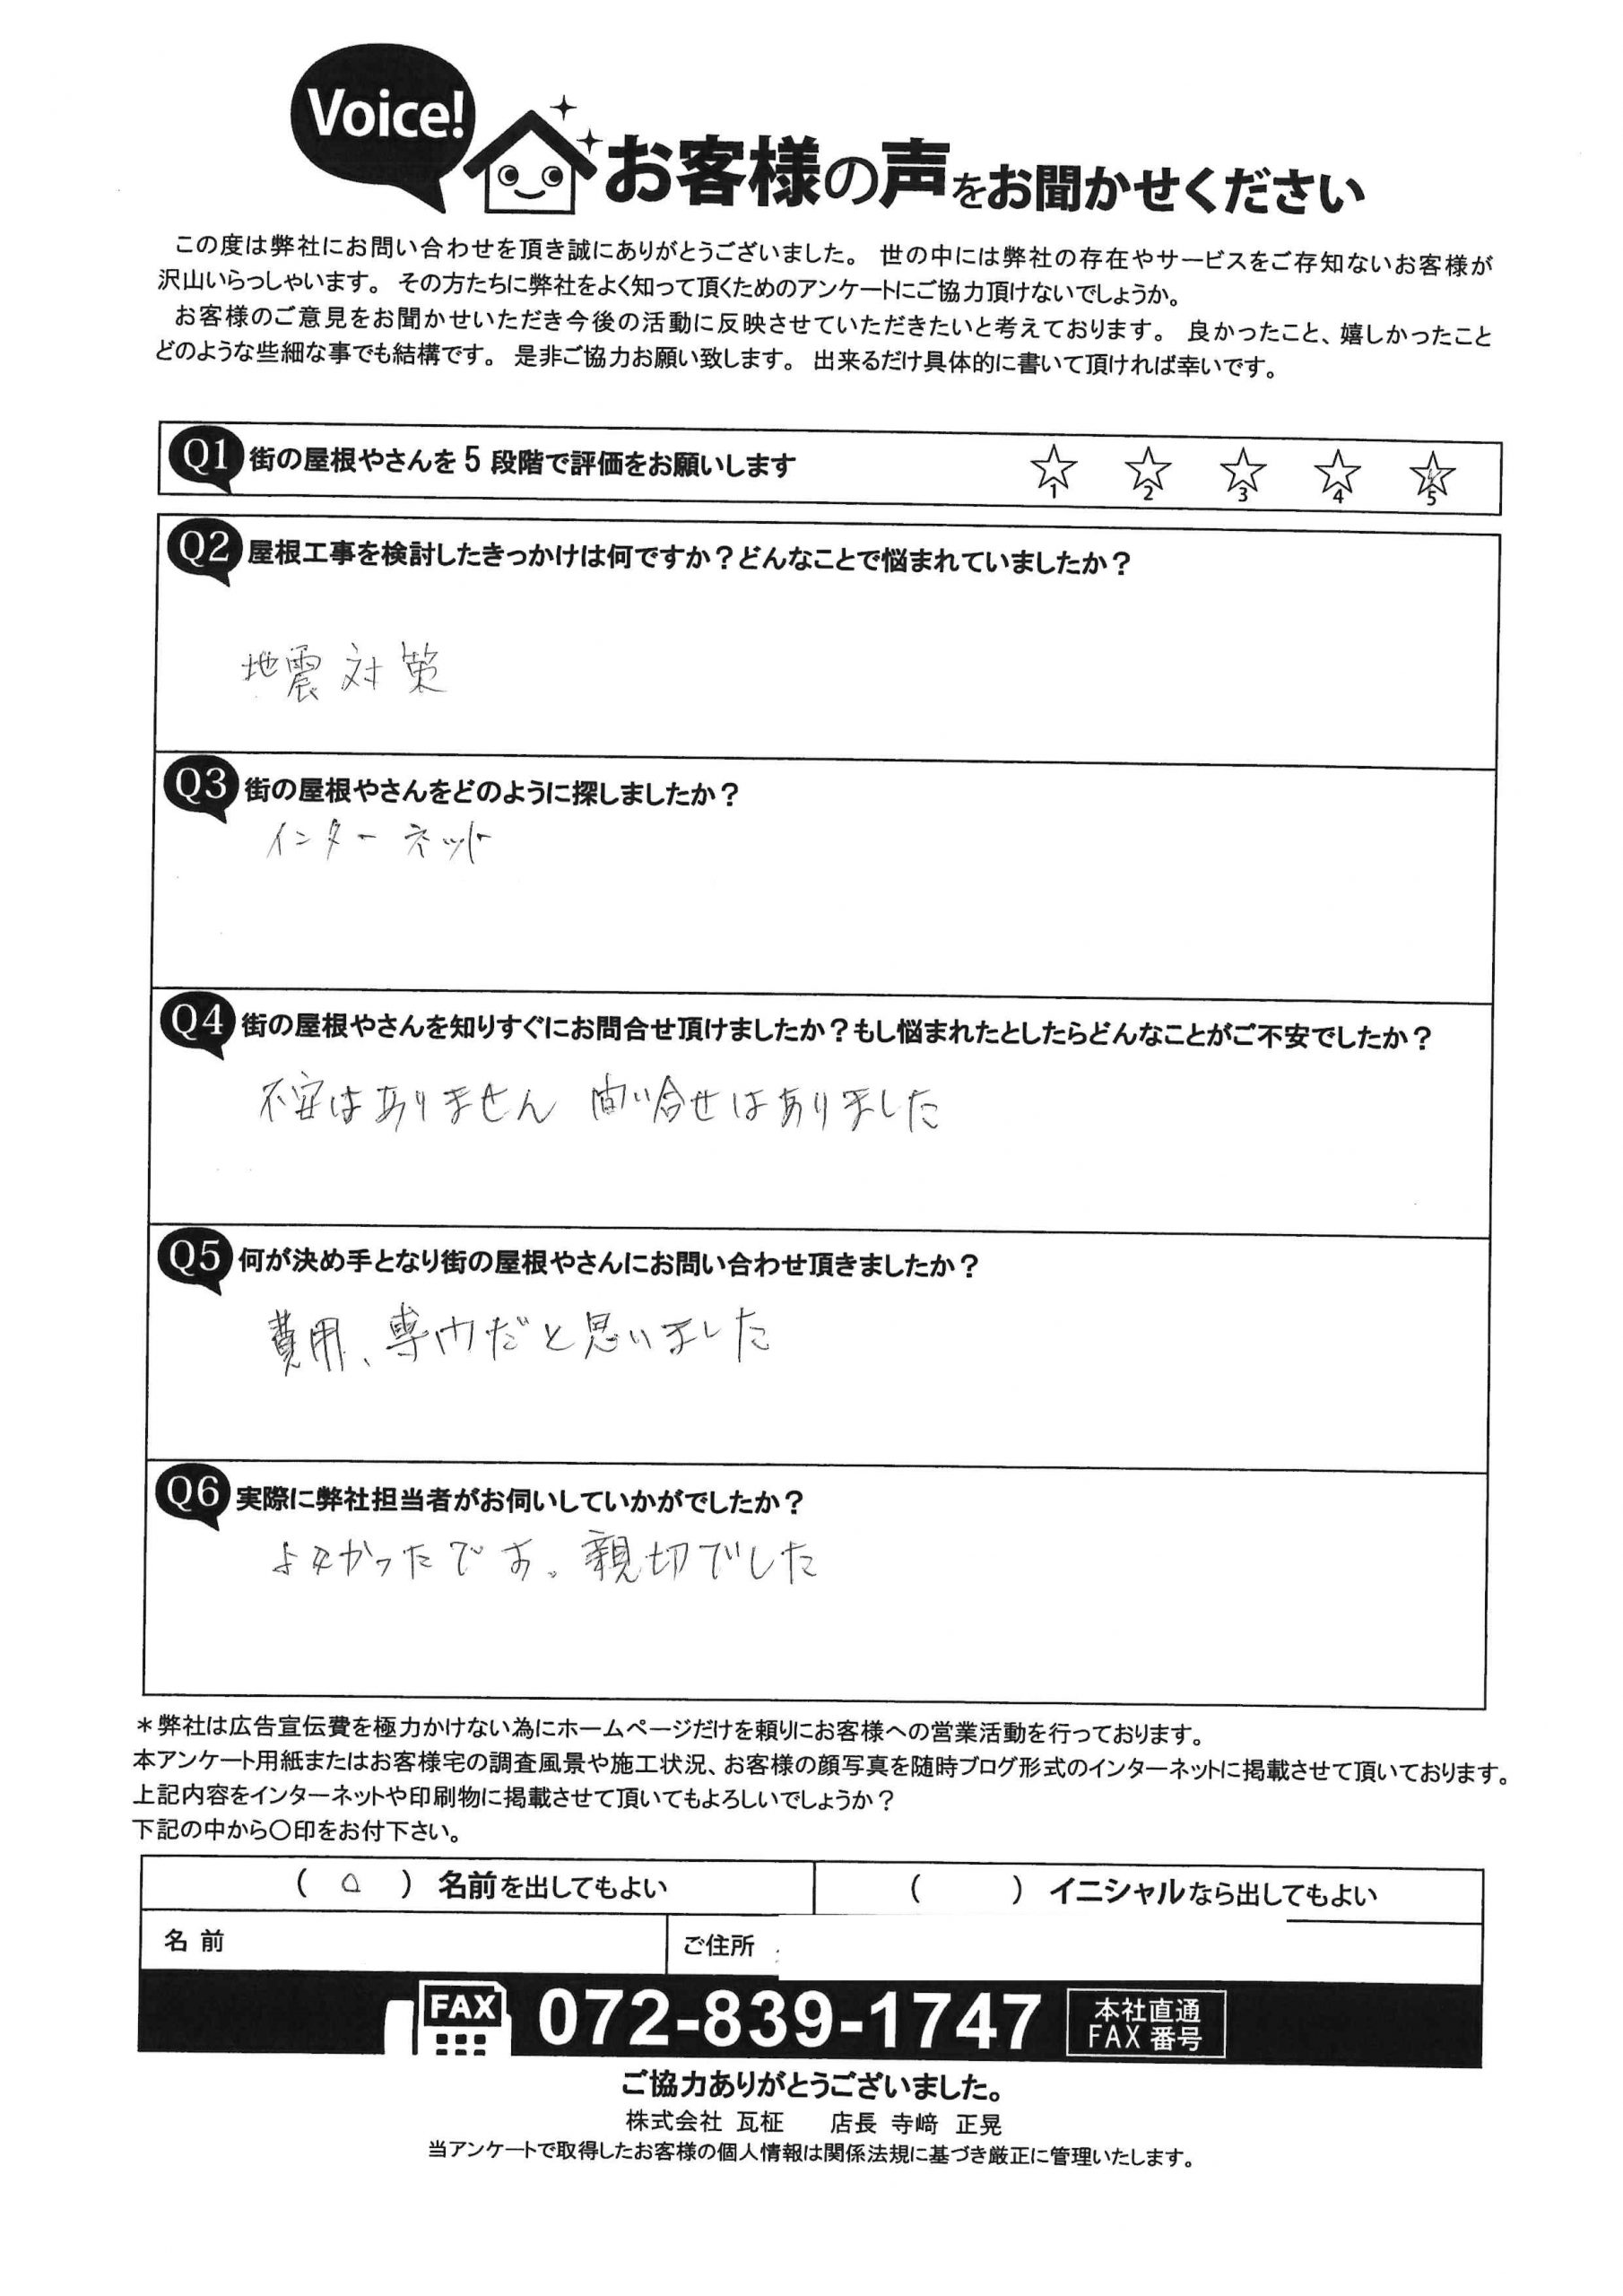 Voice!
お客様の声をお聞かせください
この度は弊社にお問い合わせを頂き誠にありがとうございました。 世の中には弊社の存在やサービスをご存知ないお客様が
沢山いらっしゃいます。 その方たちに弊社をよく知って頂くためのアンケートにご協力頂けないでしょうか。
お客様のご意見をお聞かせいただき今後の活動に反映させていただきたいと考えております。 良かったこと、嬉しかったこと
どのような些細な事でも結構です。 是非ご協力お願い致します。 出来るだけ具体的に書いて頂ければ幸いです。
Q1 街の屋根やさんを 5 段階で評価をお願いします ☆1 ☆2 ☆3 ☆4 ☆5
Q2 屋根工事を検討したきっかけは何ですか？どんなことで悩まれていましたか？
地震対策
Q3 街の屋根やさんをどのように探しましたか？
インターネット
Q4 街の屋根やさんを知りすぐにお問合せ頂けましたか？もし悩まれたとしたらどんなことがご不安でしたか？
不安はありません 問い合せはありました
Q5 何が決め手となり街の屋根やさんにお問い合わせ頂きましたか？
費用、専門だと思いました
Q6 実際に弊社担当者がお伺いしていかがでしたか？
よかったです。親切でした
＊弊社は広告宣伝費を極力かけない為にホームページだけを頼りにお客様への営業活動を行っております。
本アンケート用紙またはお客様宅の調査風景や施工状況、お客様の顔写真を随時ブログ形式のインターネットに掲載させて頂いております。
上記内容をインターネットや印刷物に掲載させて頂いてもよろしいでしょうか？
下記の中から〇印をお付下さい。
（ 〇 ） 名前を出してもよい （ ） イニシャルなら出してもよい
名 前 ご住所
FAX 072-839-1747 本社直通
FAX 番号
ご協力ありがとうございました。
株式会社 瓦柾 店長 寺﨑 正晃
当アンケートで取得したお客様の個人情報は関係法規に基づき厳正に管理いたします。